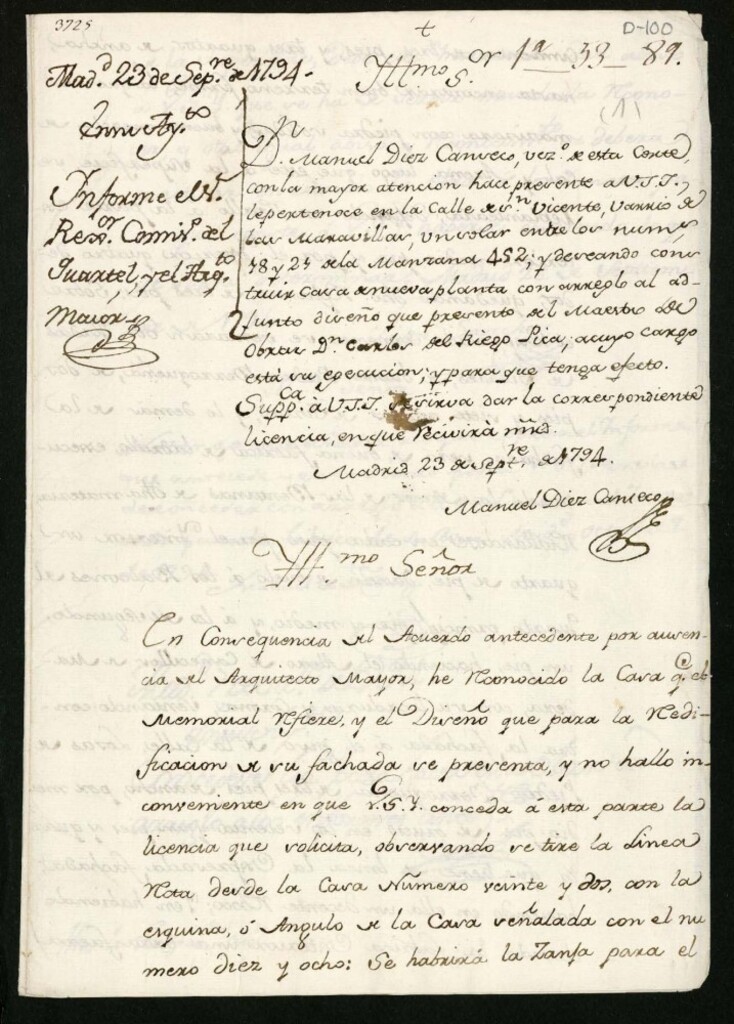 3725
D-100
+
Mad.d 23 de Sep.re de 1794.
Yll.mo S.or
1a 53 89.
(1)
En su Ay.to
Informe el S.
Rexor. Comis.o del
Quartel, y el Arq.to
Maior
Dn. Manuel Diez Canseco, vez.o de esta Corte,
con la mayor atencion hace presente a V.S.I.
le pertenece en la Calle de Sn. Vicente, varrio de
las Maravillas, un solar entre los nums
18 y 21 de la Manzana 452; y deseando cons
truir Casa de nueva planta con arreglo al ad
junto diseño que presento del Maestro de
Obras Dn. Carlos del Riego Pica, a cuyo cargo
está su egecucion; y para que tenga efecto.
Suppca. à V.S.I. se sirva dar la correspondiente
licencia, en que recivirà mrd.
Madrid 23 de Septre. de 1794.
Manuel Diez Canseco
Yll.mo Señor
En Consequencia del Acuerdo antecedente por ausen-
cia del Arquitecto Mayor, he reconocido la Casa q.e el
Memorial refiere, y el Diseño que para la redi-
ficacion de su fachada se presenta, y no hallo in-
conveniente en que V.S.Y. conceda á esta parte la
licencia que solicita, observando se tire la Linea
recta desde la Casa Número veinte y dos, con la
esquina, ó Angulo de la Casa señalada con el nu
mero diez y ocho: Se habrirá la Zanja para el